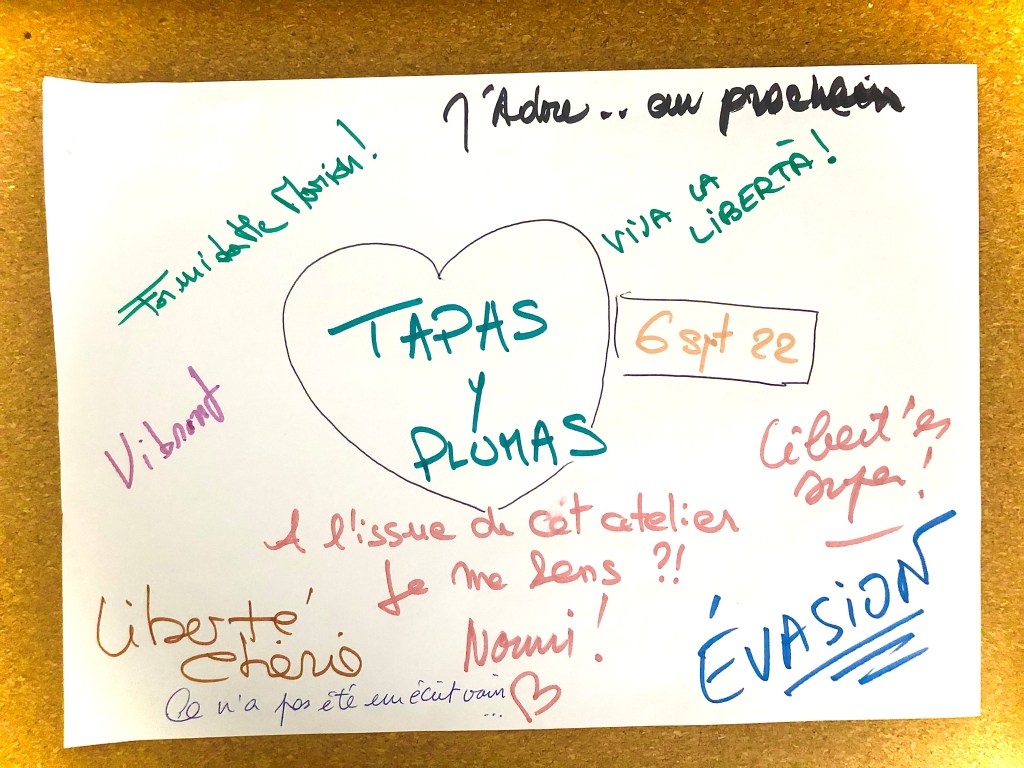 J'Adore.. au prochain
Formidable Marion!
VIVA LA
LIBERTÀ!
TAPAS
Y
PLUMAS
6 spt 22
Vibrant
Libert'és
super!
A l'issue de cet atelier
Je me sens ?!
Nourri!
Liberté
chérie
ÉVASION
Ce n'a pas été un écrit vain
...